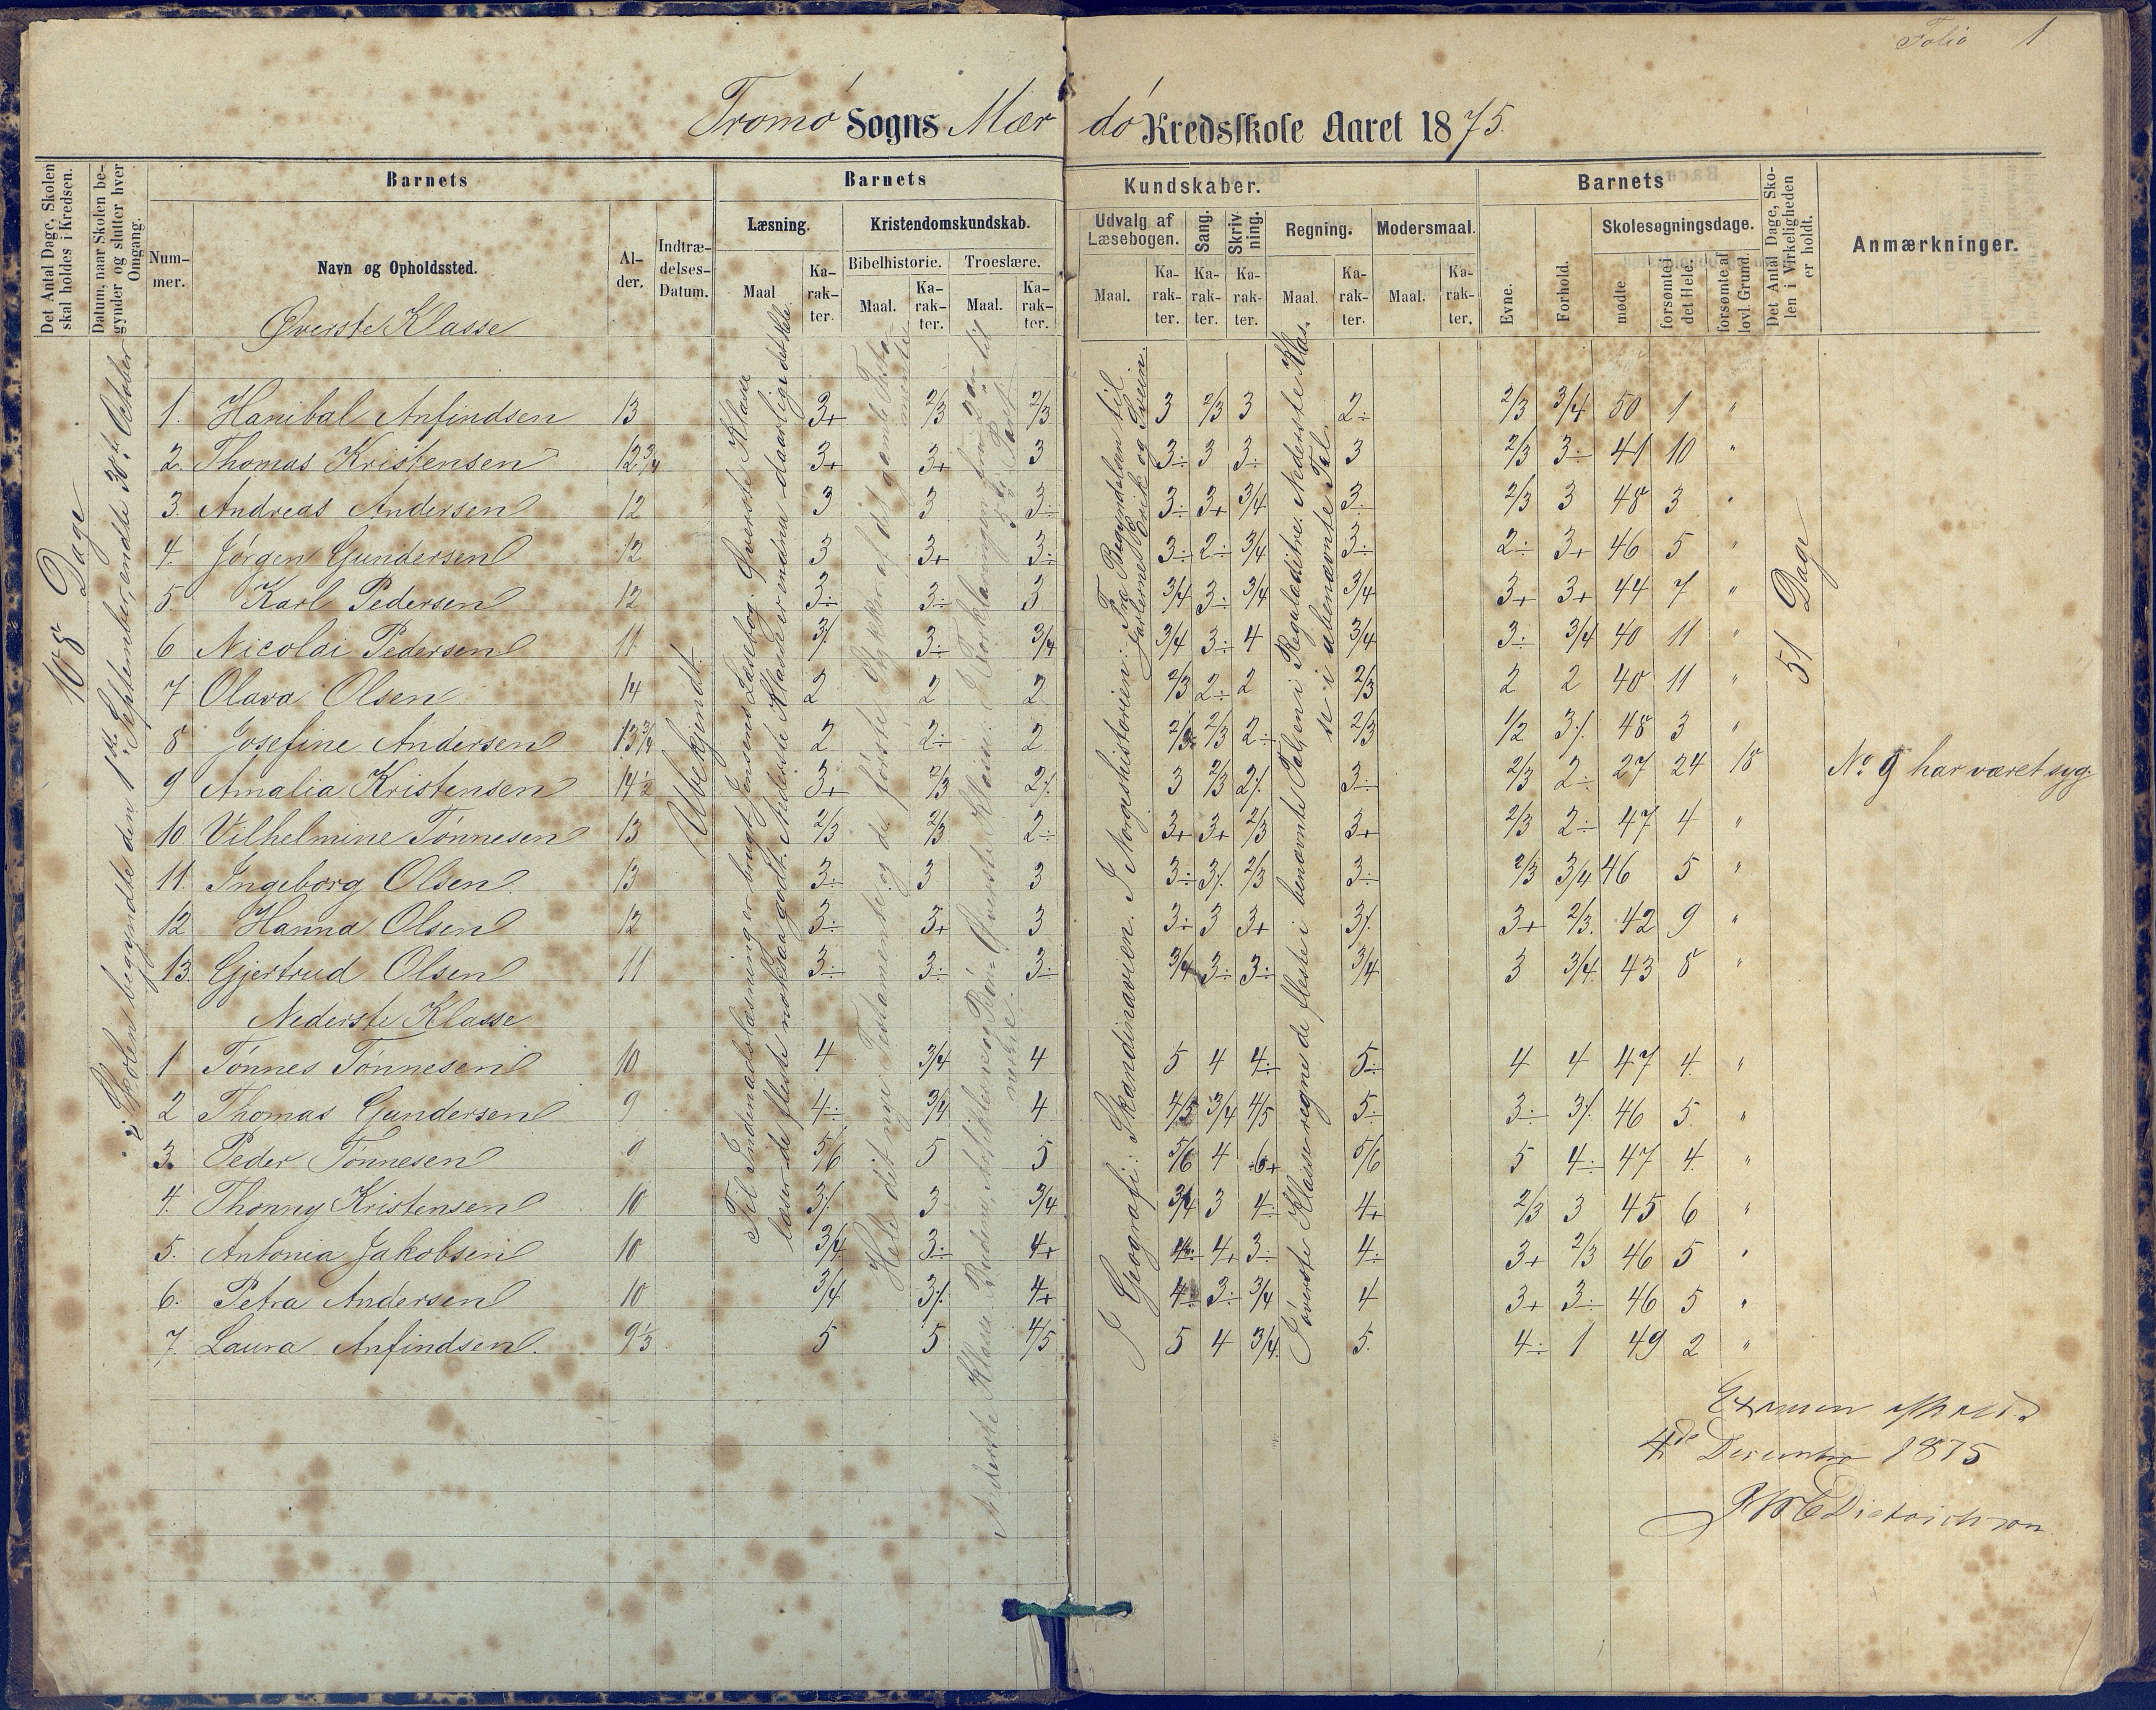 Folio 1
Tromø Sogns Mærdø Kredsskole Aaret 1875.
Det Antal Dage, Skolen skal holdes i Kredsen.
Datum, naar Skolen begynder og slutter hver Omgang.
Barnets
Nummer.
Navn og Opholdssted.
Alder.
Indtrædelses-Datum.
Barnets Kundskaber.
Læsning.
Maal
Karakter.
Kristendomskundskab.
Bibelhistorie.
Maal.
Karakter.
Troeslære.
Maal.
Karakter.
Udvalg af Læsebogen.
Maal.
Karakter.
Sang.
Karakter.
Skrivning.
Karakter.
Regning.
Maal.
Karakter.
Modersmaal.
Maal.
Karakter.
Barnets
Evne.
Forhold.
Skolesøgningsdage.
mødte
forsømte i det Hele.
forsømte af lovl. Grund.
Det Antal Dage, Skolen i Virkeligheden er holdt.
Anmærkninger.
108 Dage
Skolen begyndte den 1ste September, endte 30te October
Ubbekjendt.
Til Indenadslæsning er brugt Jensens Læsebog. Øverste Klasse
læser de fleste nokсaa godt. Nederste Klasse
Hele det nye Testamente og de første Stykker af det gamle Testamente
I Geografi: Skandinavien. I Norgeshistorien: Fra Begyndelsen til
Jarlerne Erik og Svein.
I øverste Klasse regne de fleste i benævnte Tal, en i Reguladetri. Nederste Klas-
se i ubenævnte Tal.
51 Dage
Øverste Klasse
1. Hanibal Anfindsen 13 3+ 2/3 2/3 3 2/3 3 2÷ 2/3 3/4 50 1 "
2. Thomas Kristensen 12 3/4 3+ 3+ 3 3÷ 3 3÷ 3 2/3 3÷ 41 10 "
3. Andreas Andersen 12 3 3 3÷ 3÷ 3+ 3/4 3÷ 2/3 3 48 3 "
4. Jørgen Gundersen 12 3 3+ 3÷ 3÷ 2÷ 3/4 3÷ 2÷ 3+ 46 5 "
5 Karl Pedersen 12 3÷ 3÷ 3 3/4 3÷ 3/4 3/4 3+ 3+ 44 7 "
6 Nicolai Pedersen 11 3⁒ 3÷ 3/4 3/4 3÷ 4 3/4 3÷ 3/4 40 11 "
7 Olava Olsen 14 2 2 2 2/3 2÷ 2 2/3 2 2 40 11 "
8 Josefine Andersen 13 3/4 2 2÷ 2 2/3 2/3 2÷ 2/3 1/2 3⁒ 48 3 "
9 Amalia Kristensen 14 1/2 3+ 2/3 2⁒ 3 2/3 2⁒ 3÷ 2/3 2÷ 27 24 18 No 9 har været syg.
10 Vilhelmine Tønnesen 13 2/3 2/3 2÷ 3+ 3+ 2/3 3+ 2/3 2÷ 47 4 "
11. Ingeborg Olsen 13 3÷ 3 3 3÷ 3⁒ 2/3 3÷ 2/3 3/4 46 5 "
12 Hanna Olsen 12 3÷ 3+ 3 3÷ 3 3+ 3⁒ 3+ 2/3 42 9 "
13. Gjertrud Olsen 11 3÷ 3÷ 3÷ 3/4 3÷ 3÷ 3/4 3 3/4 43 8 "
Nederste Klasse
1 Tønnes Tønnesen 10 4 3/4 4 5 4 4÷ 5÷ 4 4 47 4 "
2 Thomas Gundersen 9 4÷ 3/4 4 4/5 3/4 4/5 5÷ 3÷ 3⁒ 46 5 "
3. Peder Tønnesen 9 5/6 5 5 5/6 4 6+ 5/6 5 4÷ 47 4 "
4. Thonny Kristensen 10 3⁒ 3 3/4 3/4 3 4÷ 4+ 2/3 3 45 6 "
5. Antonia Jakobsen 10 3/4 3÷ 4+ 4÷ 4+ 3÷ 4÷ 3+ 2/3 46 5 "
6. Petra Andersen 10 3/4 3⁒ 4+ 4÷ 3÷ 3/4 4 3+ 3÷ 46 5 "
7 Laura Anfindsen. 9 1/3 5 5 4/5 5 4 3/4 5. 4÷ 1 49 2 "
Examen afholdt
4de December 1875
Dietrichson